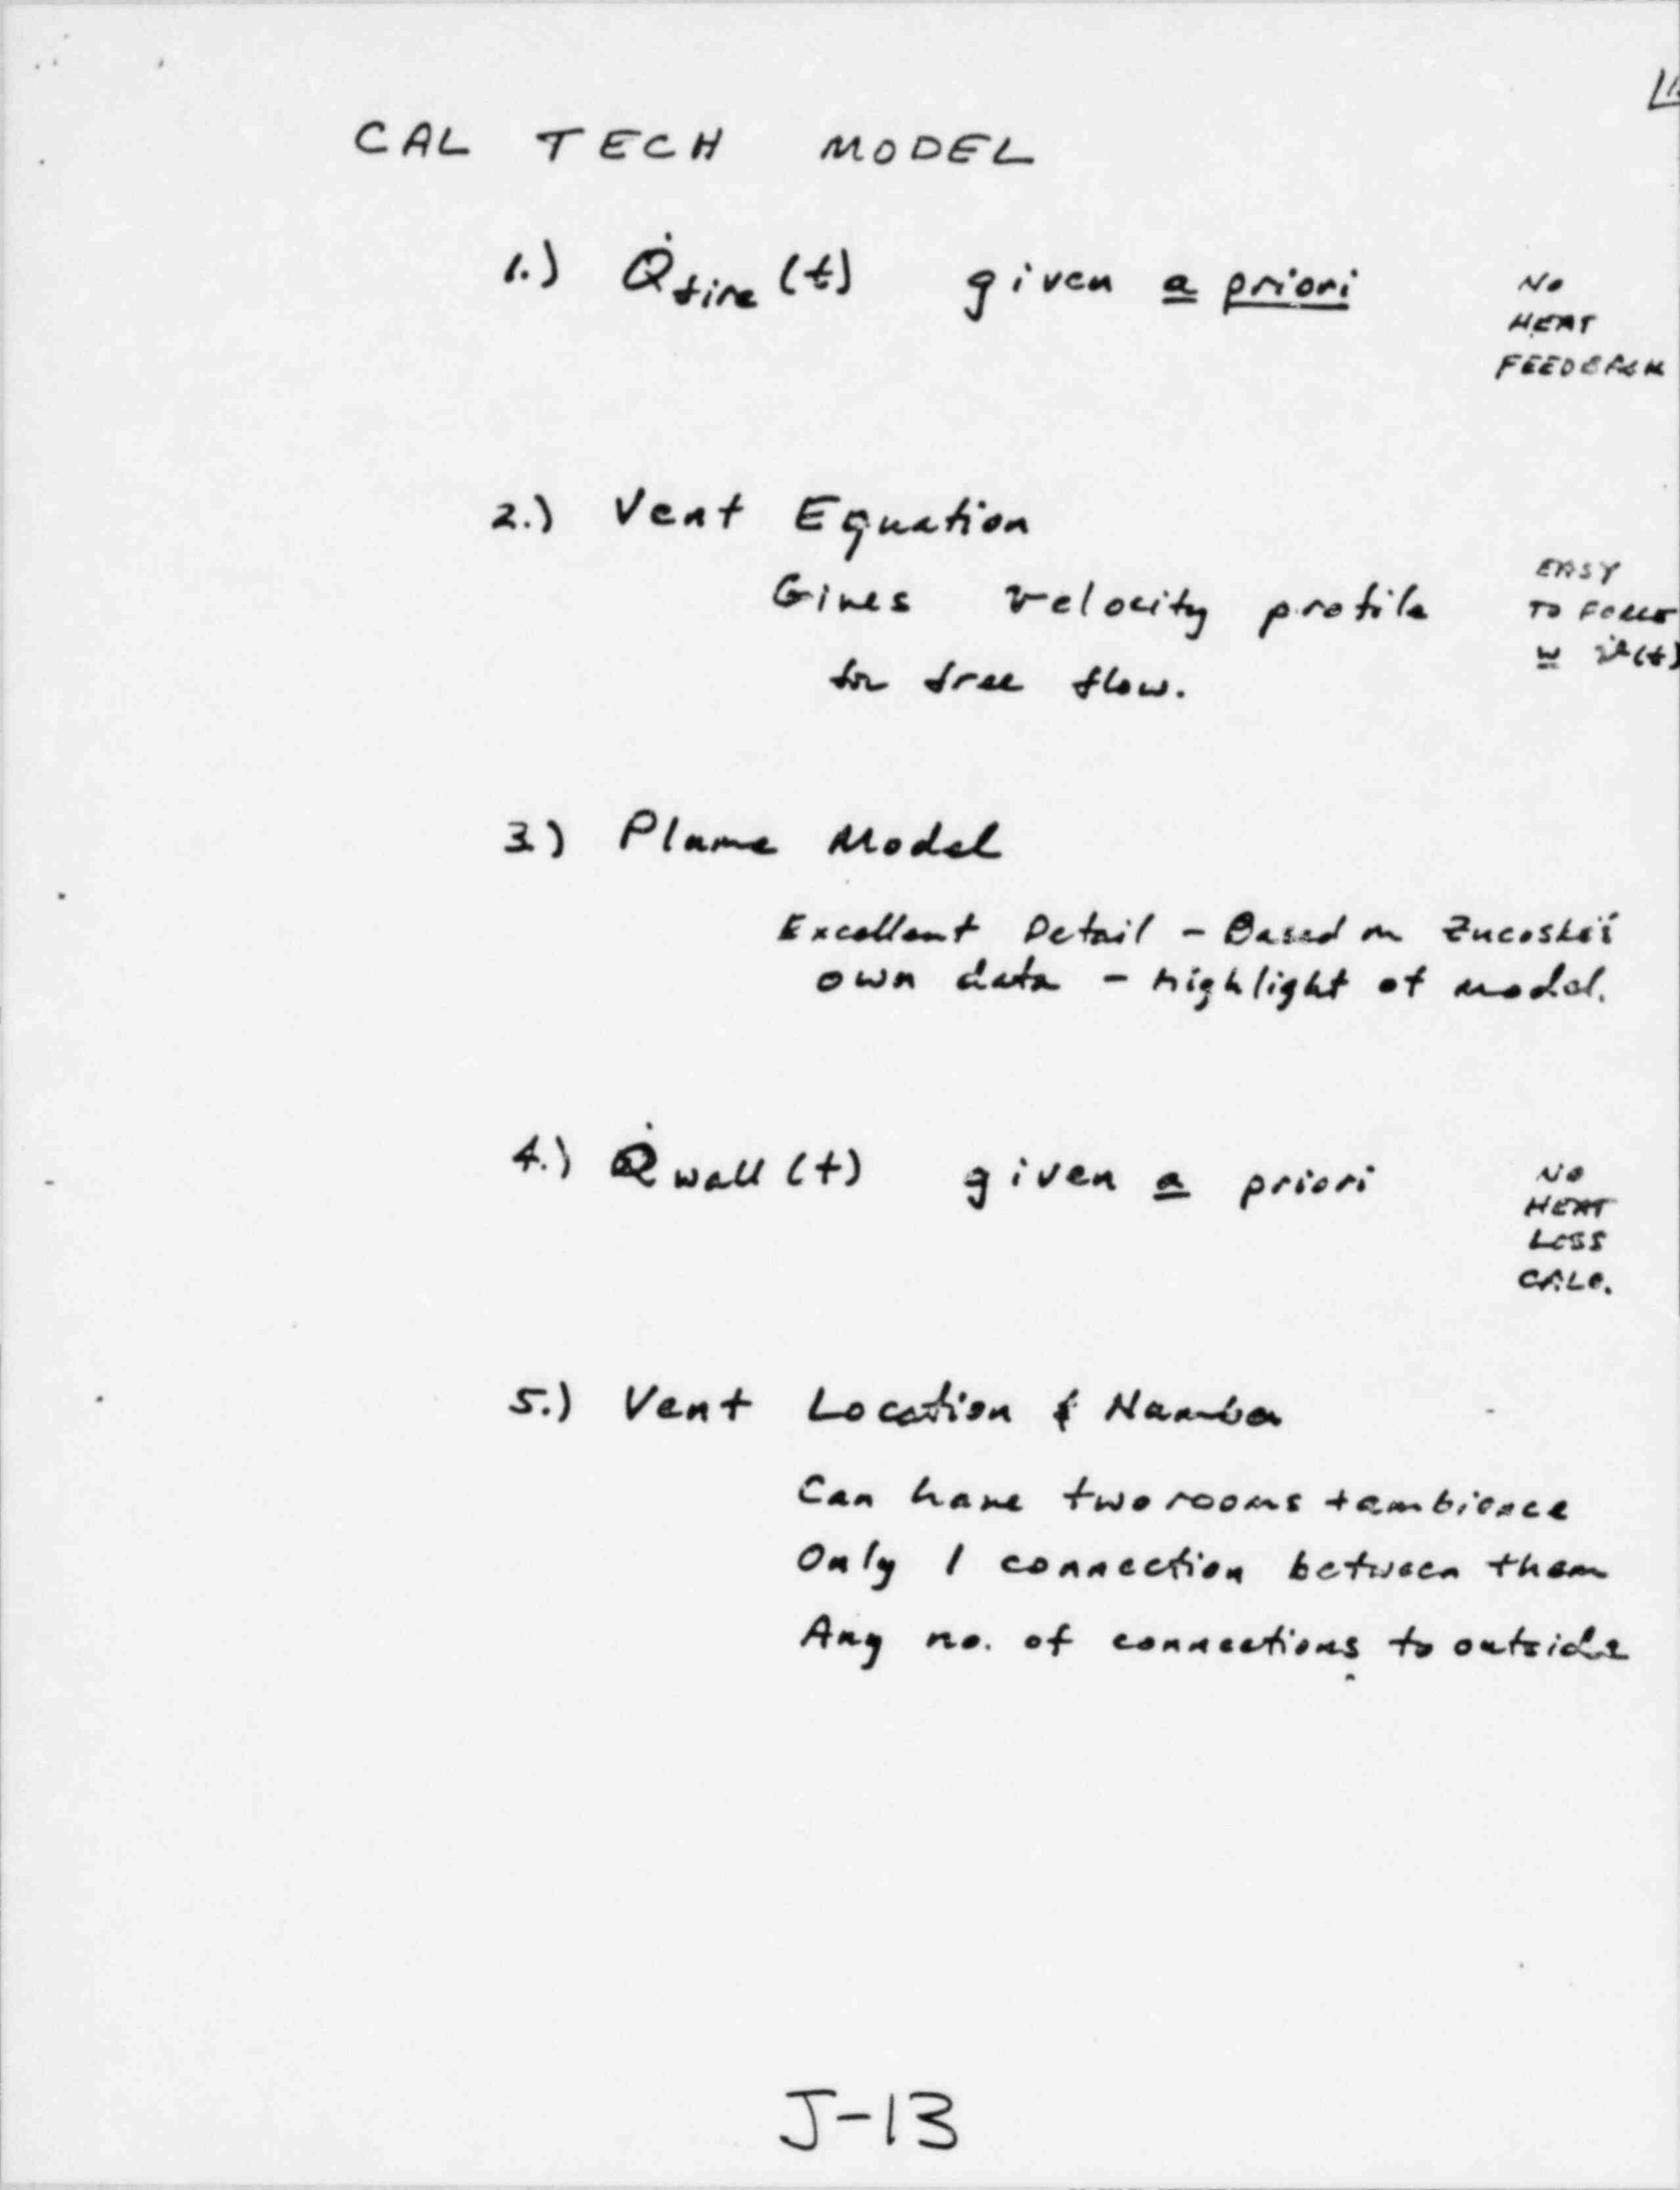 CAL TECH MODEL
1.) Q̇fire (t) given a priori
NO
HEAT
FEEDBACK
2.) Vent Equation
Gives velocity profile
for free flow.
EASY
TO FORCE
w (t)
3.) Plume Model
Excellent Detail - Based on Zucoski's
own data - highlight of model.
4.) Q̇wall (t) given a priori
NO
HEAT
LOSS
CALC.
5.) Vent Location & Number
Can have two rooms + ambience
Only 1 connection between them
Any no. of connections to outside
J-13